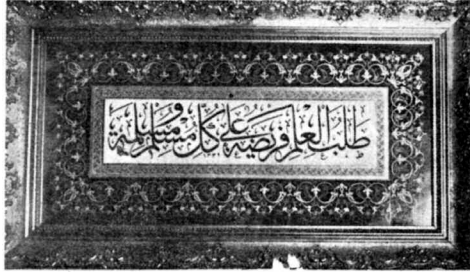 طلب العلم فريضة على كل مسلم ومسلمة